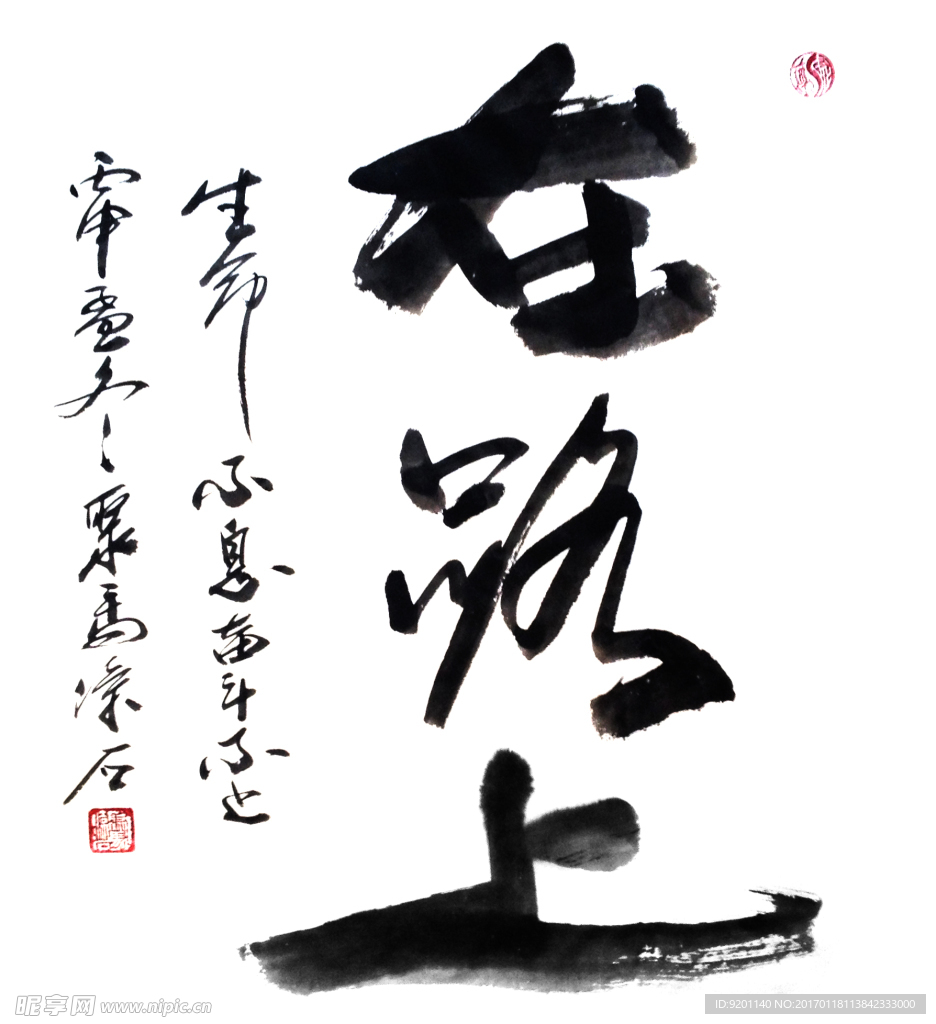 在路上
生命不息奋斗不止
冬 馬 石
昵享网 www.nipic.cn
ID:9201140 NO:20170118113842333000